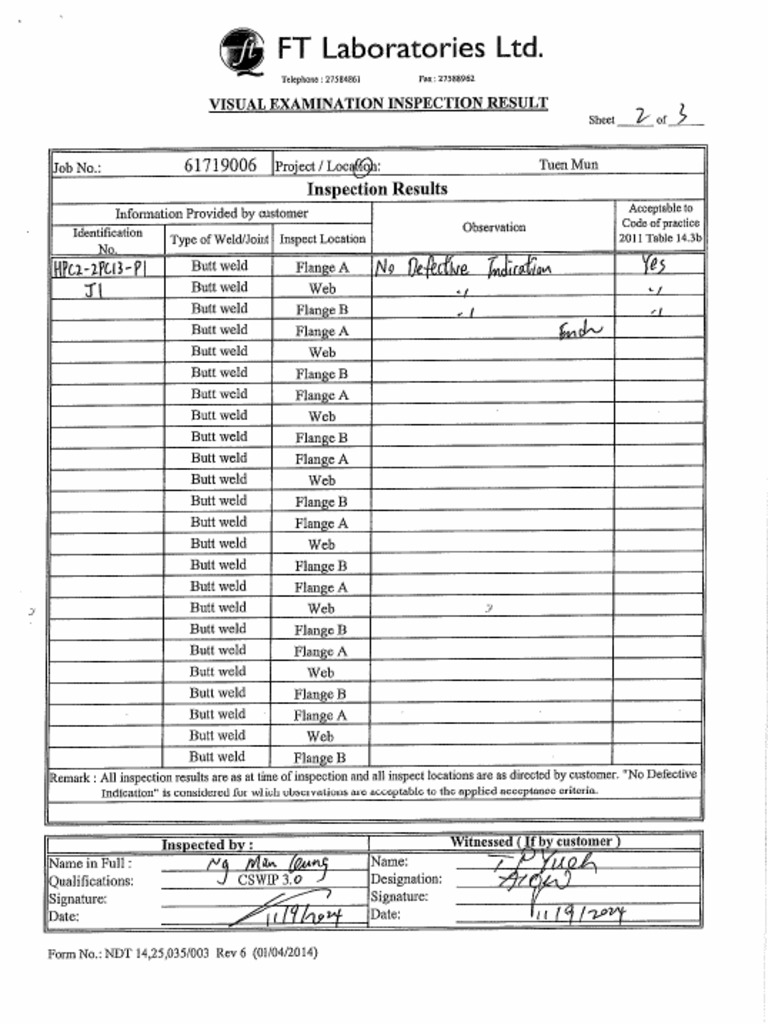 ft FT Laboratories Ltd.
Telephone : 27584861 Fax : 27588962
VISUAL EXAMINATION INSPECTION RESULT
Sheet 2 of 3
Job No.: 61719006 Project / Location: Tuen Mun
Inspection Results
Information Provided by customer Observation Acceptable to Code of practice 2011 Table 14.3b
Identification No. Type of Weld/Joint Inspect Location
HPC2-2PC13-P1 Butt weld Flange A No Defective Indication Yes
J1 Butt weld Web 〃 〃
Butt weld Flange B 〃 〃
Butt weld Flange A End
Butt weld Web
Butt weld Flange B
Butt weld Flange A
Butt weld Web
Butt weld Flange B
Butt weld Flange A
Butt weld Web
Butt weld Flange B
Butt weld Flange A
Butt weld Web
Butt weld Flange B
Butt weld Flange A
Butt weld Web
Butt weld Flange B
Butt weld Flange A
Butt weld Web
Butt weld Flange B
Butt weld Flange A
Butt weld Web
Butt weld Flange B
Remark : All inspection results are as at time of inspection and all inspect locations are as directed by customer. "No Defective
Indication" is considered for which observations are acceptable to the applied acceptance criteria.
Inspected by : Witnessed ( If by customer )
Name in Full : Ng Man Leung Name: T P Yueh
Qualifications: CSWIP 3.0 Designation:
Signature: Signature:
Date: 11/9/2024 Date: 11/9/2024
Form No.: NDT 14,25,035/003 Rev 6 (01/04/2014)